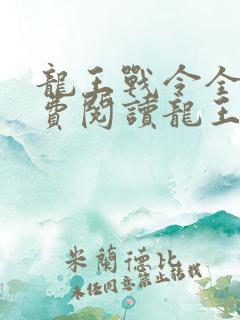 龍王戰令全
費閱讀龍王
米蘭德比
未经同意禁止转载